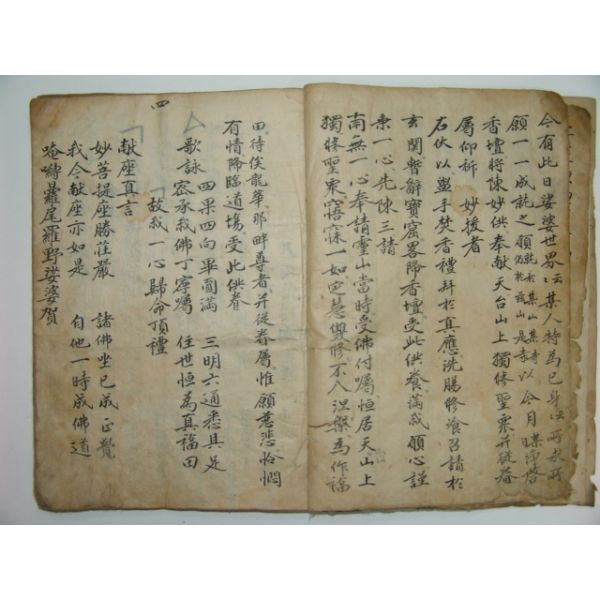 今有此日娑婆世界云云某人特爲已身云云所求所
願一一成就之願以今月淨啓
香壇將陳妙供奉献天台山上獨修聖衆并從眷
屬仰祈 妙援者
右伏以盥手焚香禮拜於真應洗膓修飡召請於
玄関暫辭寶窟畧降香壇受此供養滿我願心謹
秉一心先陳三請
南無一心奉請靈山當時受佛付囑恒居天山上
獨修聖衆寤寐一如定慧雙修不入涅槃爲作福
田待俟龍華那畔尊者并從眷屬惟願慈悲怜憫
有情降臨道場受此供養
歌詠 四果四向畢圓滿 三明六通悉具足
密承我佛丁寧囑 住世恒爲真福田
故我一心歸命頂禮
四
献座真言
妙菩提座勝莊嚴 諸佛坐已成正覺
我今献座亦如是 自他一時成佛道
唵嚩羅尾羅野娑婆賀